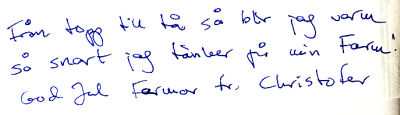 Från topp till tå så blir jag varm
så snart jag tänker på min Farm!
God Jul Farmor fr. Christofer